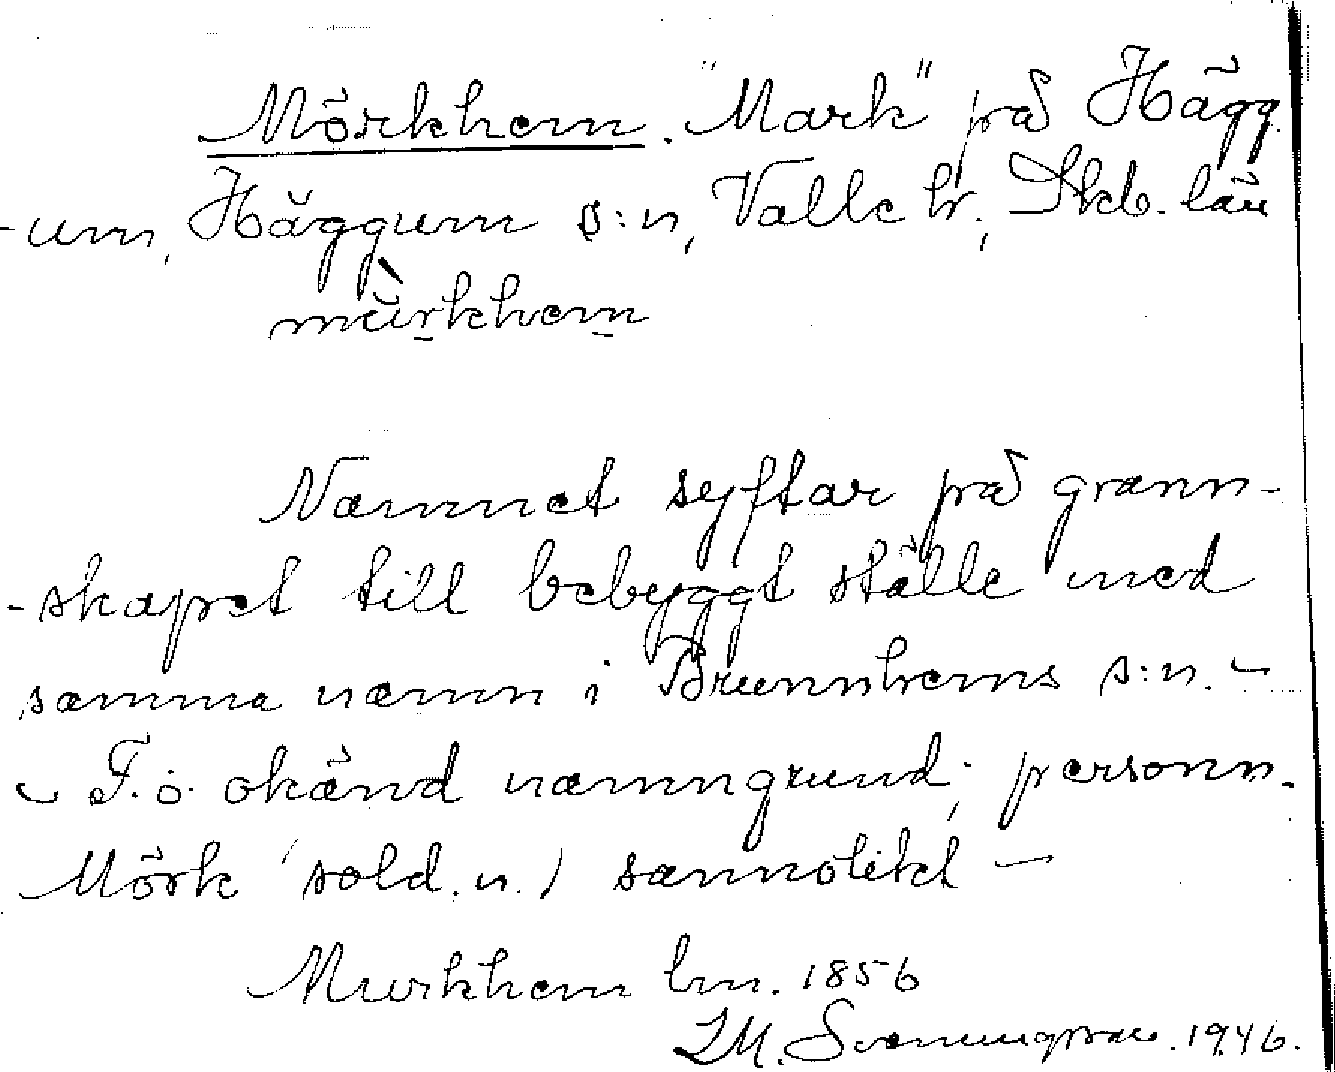 Mörkhem. "Mark" på Hägg-
-um, Häggum s:n, Valle hr, Skb. län
mùrkhem
Namnet syftar på grann-
-skapet till bebyggt ställe med
samma namn i Brunnhems s:n. -
- F. ö. okänd namngrund; personn.
Mörk (sold. n.) sannolikt -
Murkhem lm. 1856
LM. Svenungsson. 1946.